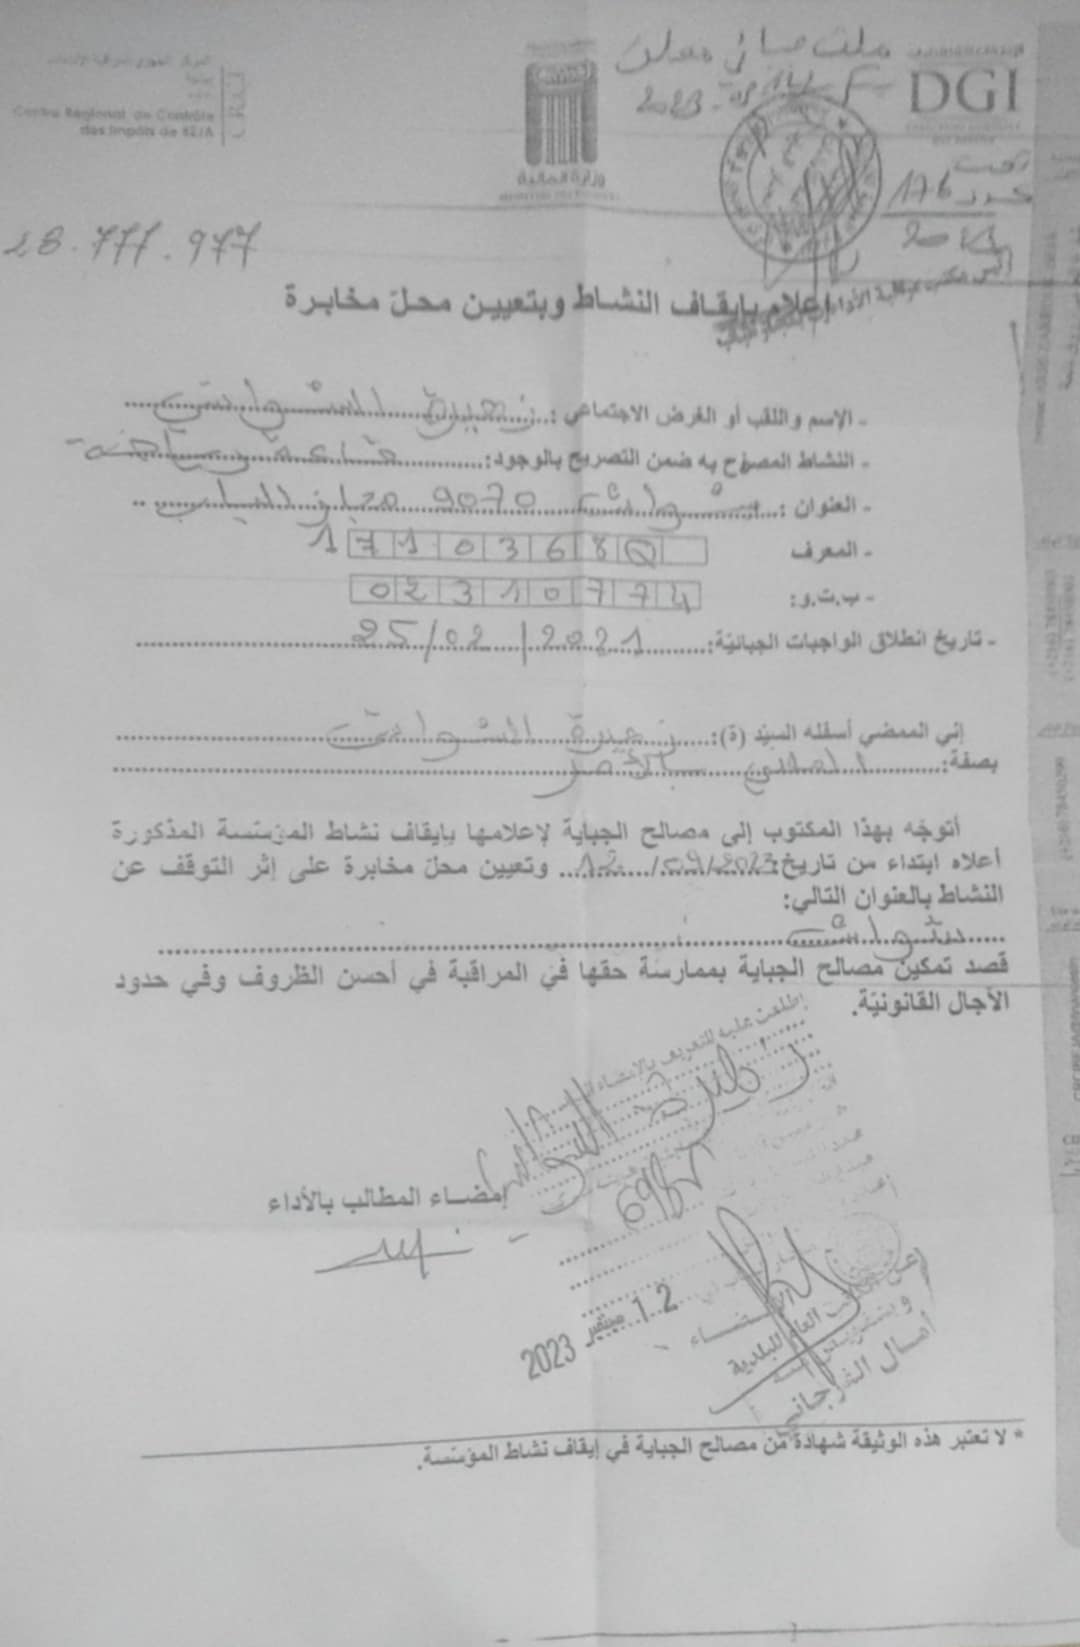 المركز الجهوي لمراقبة الأداءات
Centre Régional de Contrôle
des Impôts de BEJA
وزارة المالية
ملف جبائي مغلق
DGI
تحت
عدد 176
28.777.977
إعلام بإيقاف النشاط وبتعيين محلّ مخابرة
- الاسم واللقب أو الغرض الاجتماعي : زهيرة الشواشي
- النشاط المصرّح به ضمن التصريح بالوجود: قاعة رياضة
- العنوان : شواش 9070 مجاز الباب
- المعرف 1710368Q
- ب.ت.و: 02310774
- تاريخ انطلاق الواجبات الجبائيّة: 25/02/2021
إني الممضي أسفله السيّد (ة): زهيرة الشواشي
بصفة: المعني بالأمر
أتوجّه بهذا المكتوب إلى مصالح الجباية لإعلامها بإيقاف نشاط المؤسّسة المذكورة
أعلاه ابتداء من تاريخ 12/09/2023 وتعيين محلّ مخابرة على إثر التوقف عن
النشاط بالعنوان التالي:
شواش
قصد تمكين مصالح الجباية بممارسة حقها في المراقبة في أحسن الظروف وفي حدود
الآجال القانونيّة.
إطلعت عليه للتعريف بالإمضاء
زهيرة الشواشي
إمضاء المطالب بالأداء
12 سبتمبر 2023
الإمضاء
العام للبلدية
وبتفويض منه
أمال الفرجاني
* لا تعتبر هذه الوثيقة شهادة من مصالح الجباية في إيقاف نشاط المؤسّسة.